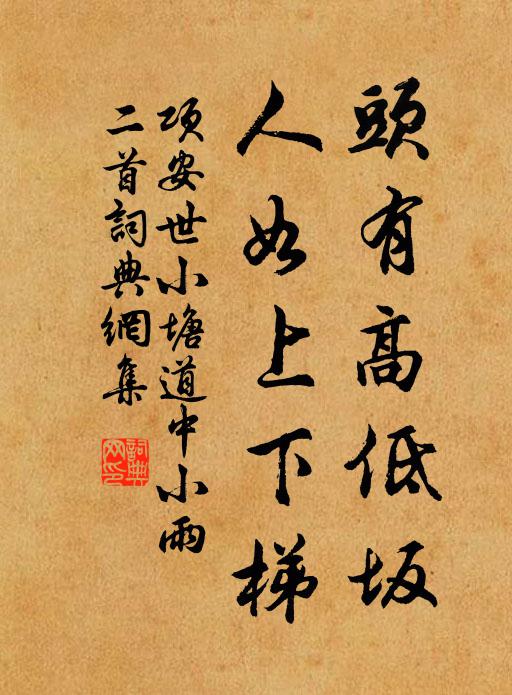 頭有高低坂
人如上下梯
項安世小塘道中小雨
二首詞典網集
詞典
网印